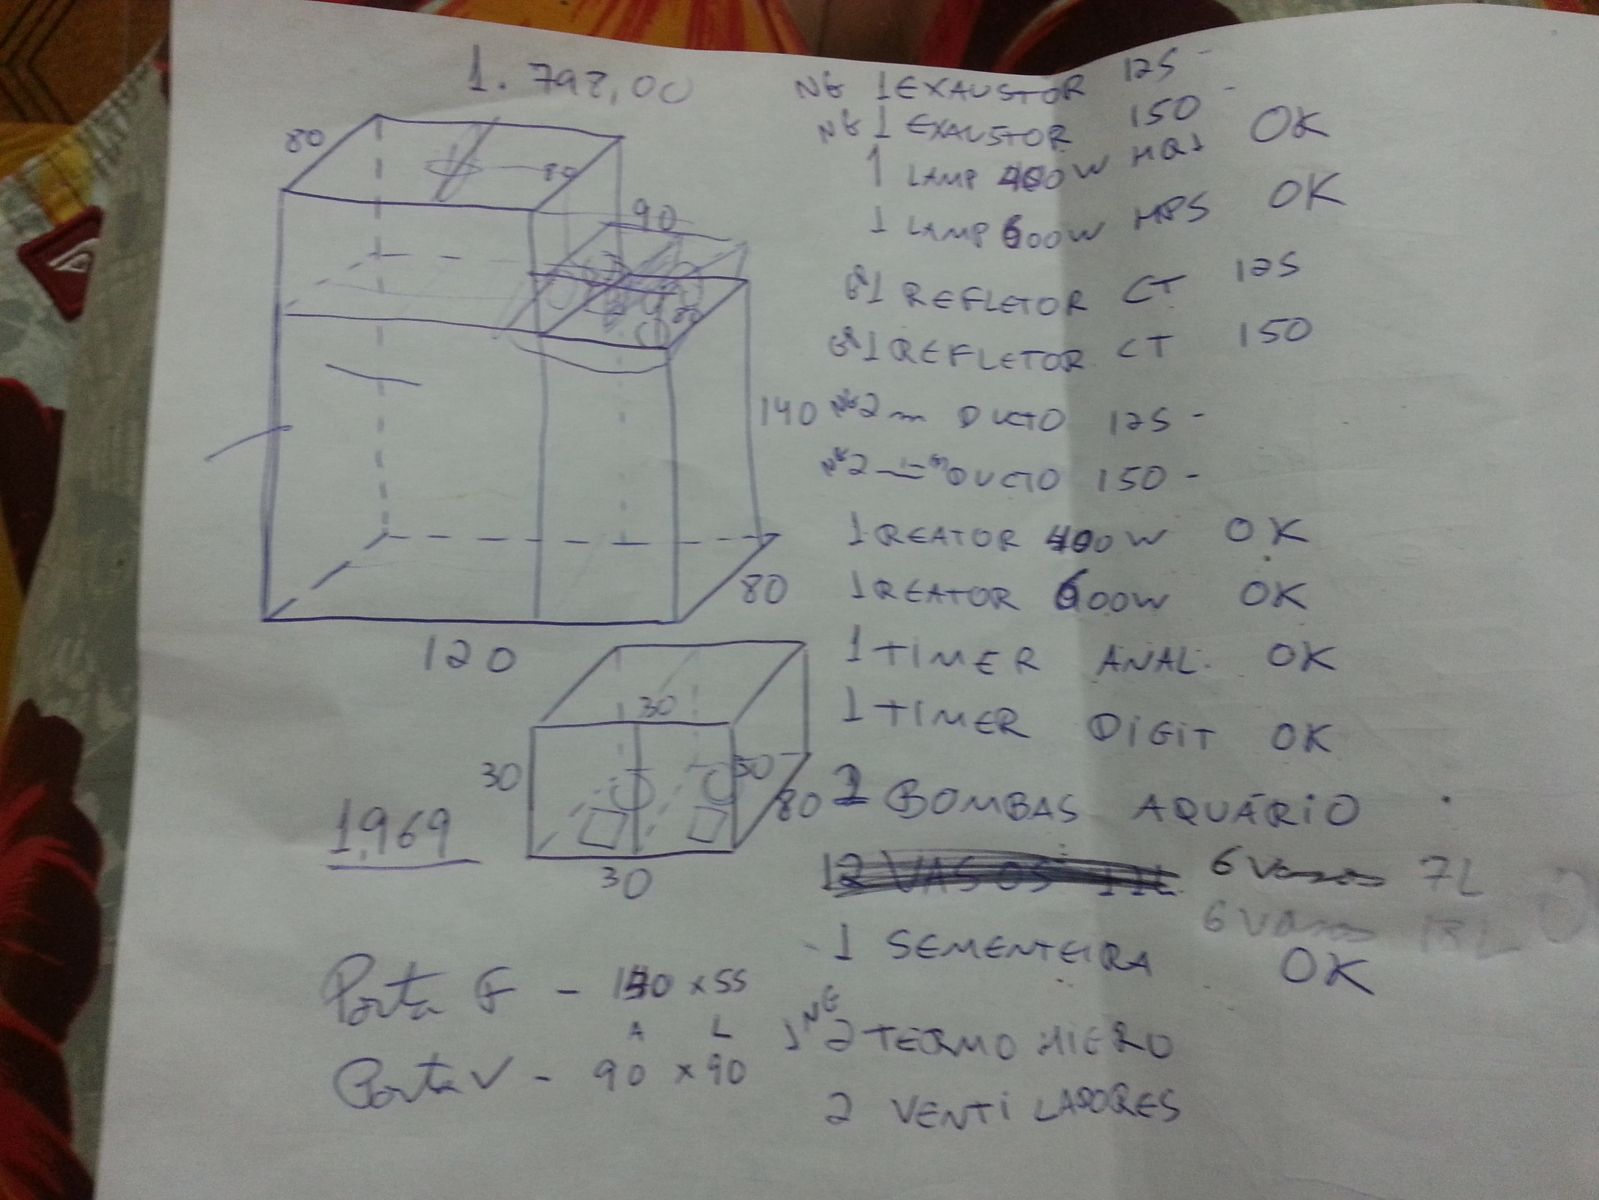 1.798,00
80
80
90
80
140
80
120
30
30
50
80
30
1.969
Porta F - 140 x 55
A L
Porta V - 90 x 90
NG 1 EXAUSTOR 125 -
NG 1 EXAUSTOR 150 -
1 LAMP 400W HQI OK
1 LAMP 600W HPS OK
1 REFLETOR CT 125
1 REFLETOR CT 150
NG 2 m DUCTO 125 -
NG 2 m DUCTO 150 -
1 REATOR 400W OK
1 REATOR 600W OK
1 TIMER ANAL. OK
1 TIMER DIGIT OK
2 BOMBAS AQUÁRIO
12 VASOS 11L 6 Vasos 7L
6 Vasos
1 SEMENTEIRA OK
NG 2 TERMO HIGRO
2 VENTILADORES